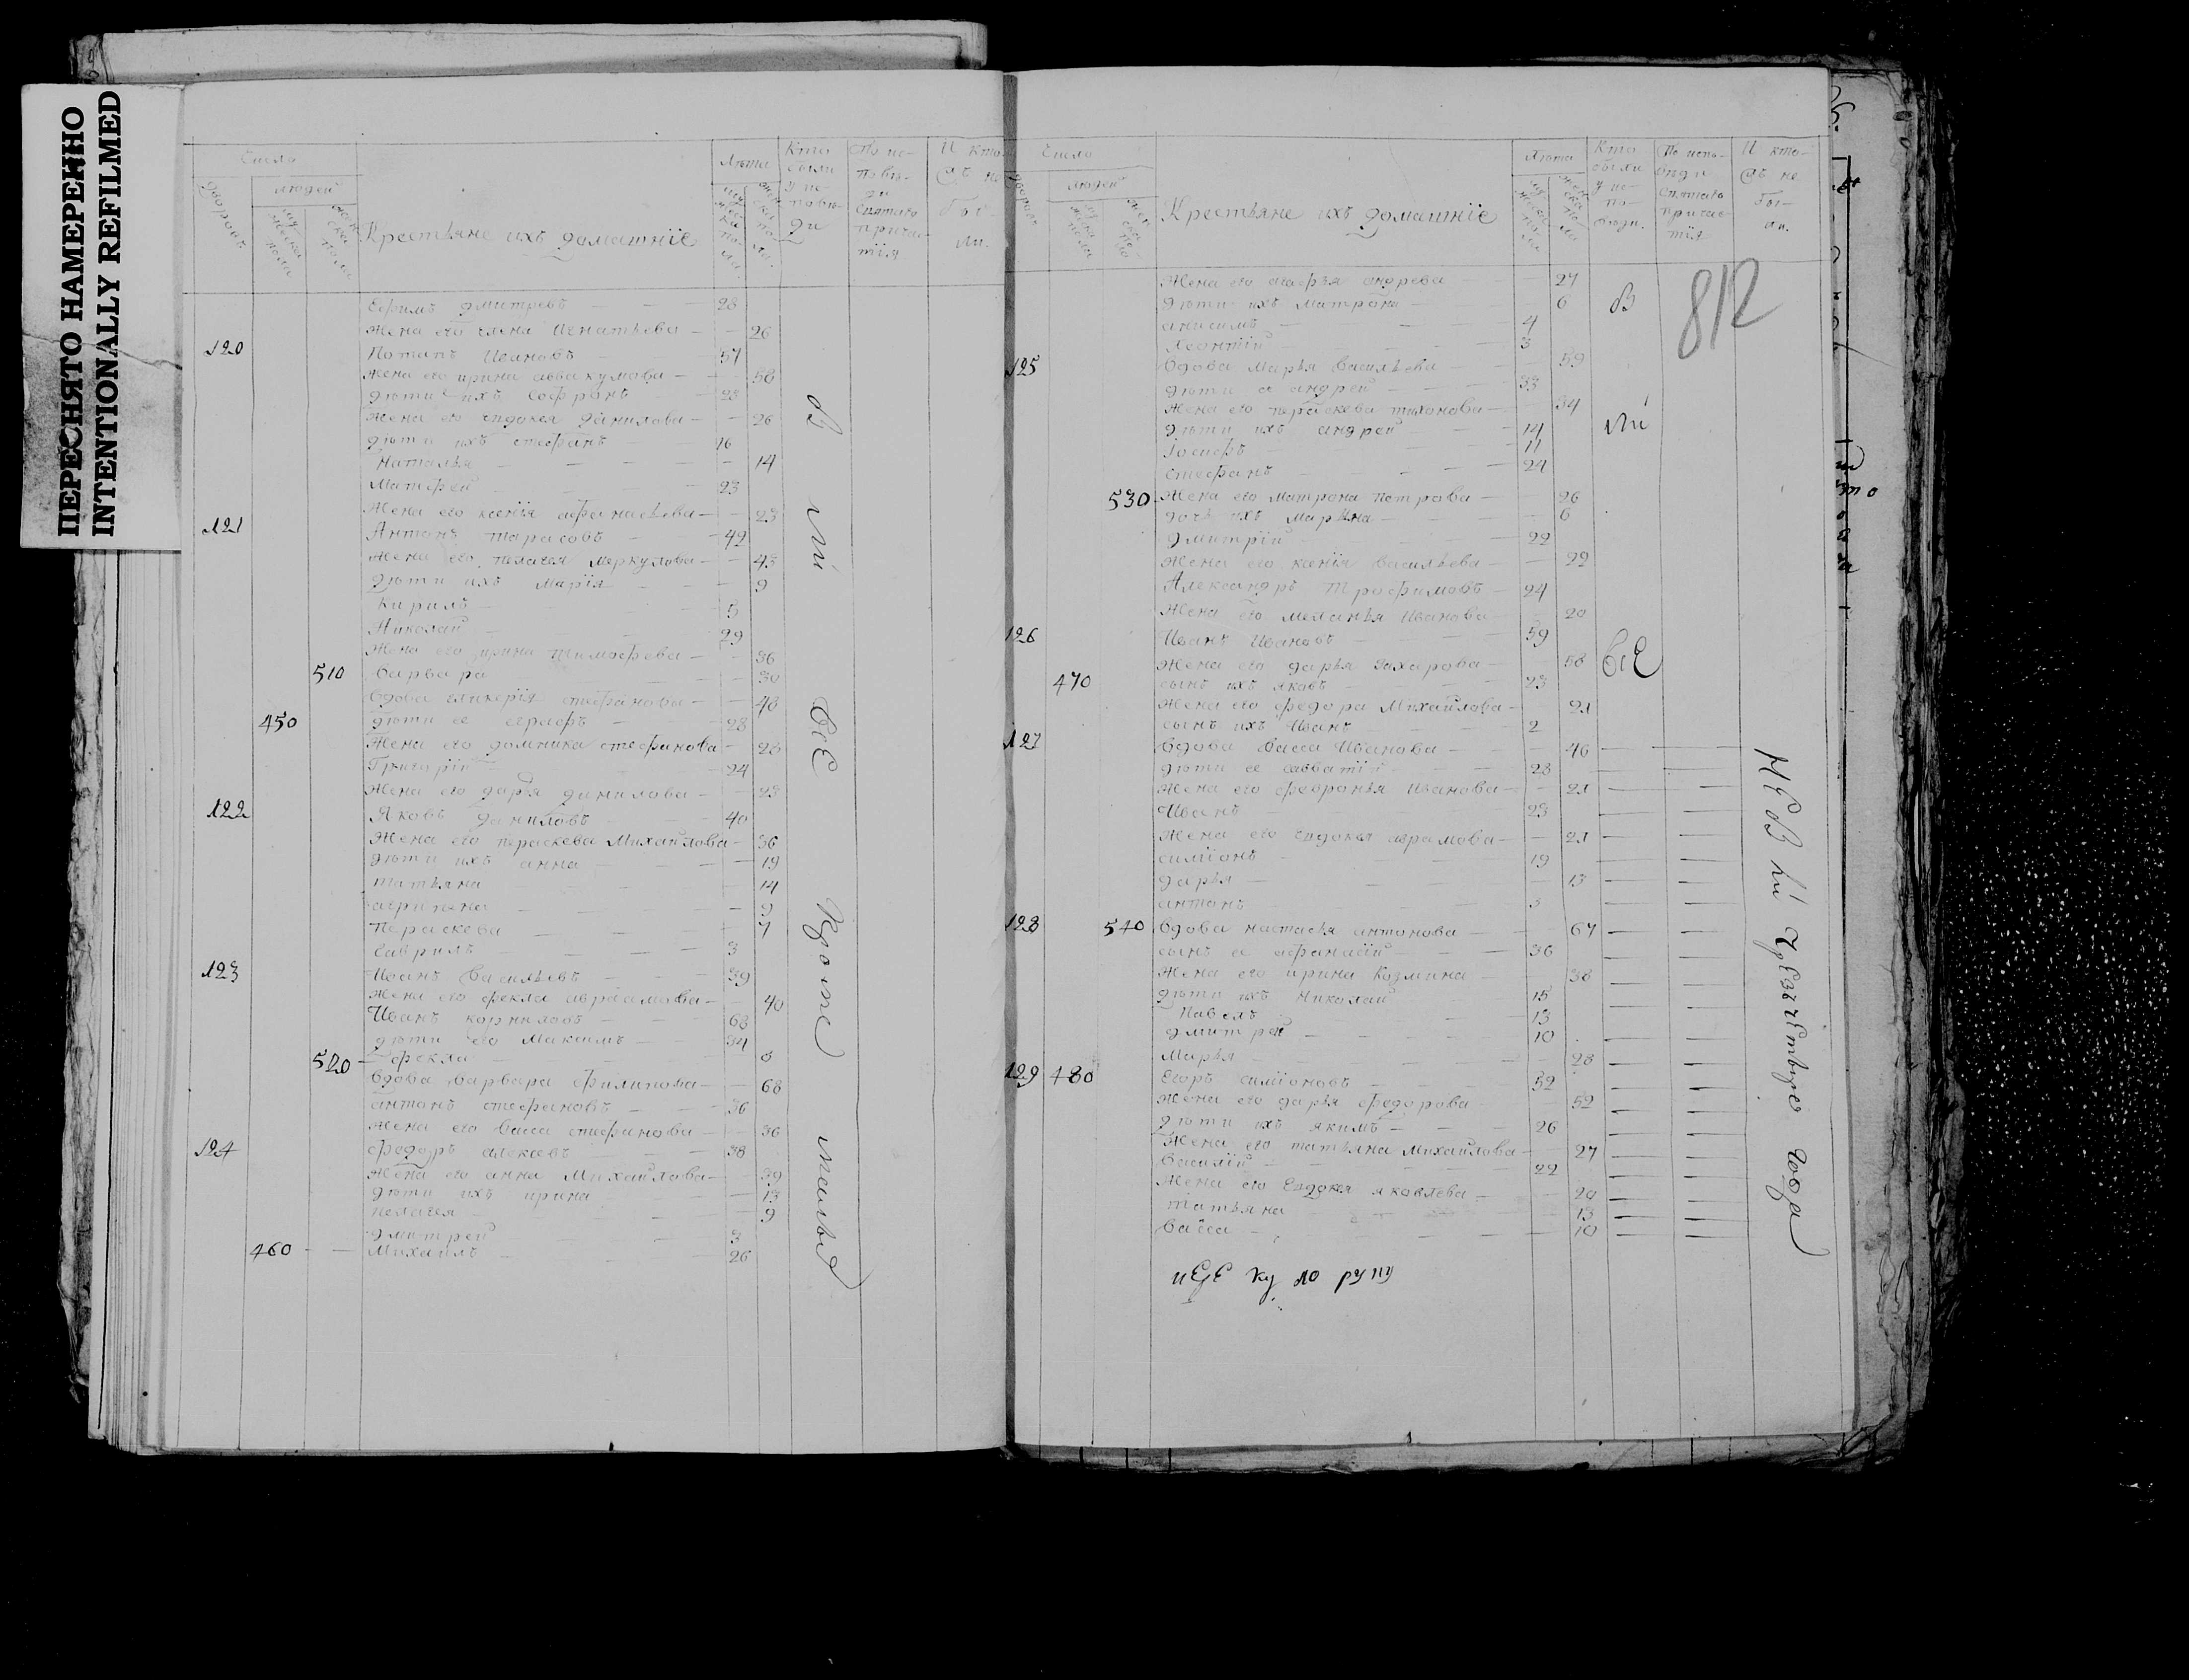 ПЕРЕСНЯТО НАМЕРЕННО
INTENTIONALLY REFILMED
Число
дворовъ
людей
мужеска пола
женска пола
Крестьяне ихъ домашнїе
Лѣта
Кто были у исповѣди
По исповѣди святаго причастїя
И кто
не
бы
ли.
Ефимъ дмитревъ 28
жена его елена Игнатьева 26
120 Потапъ Ивановъ 57
жена его ирина аввакумова 58
дѣти ихъ Софронъ 28
жена его евдокея данилова 26
дѣти ихъ стефанъ 16
Наталья 14
Матфей 23
Жена его ксенья афанасьева 23
121 Антонъ тарасовъ 42
жена его пелагея меркулова 43
дѣти ихъ марїя 9
Кирилъ 5
Николай 29
Жена его ирина тимофеева 36
510 варвара 30
вдова гликерїя стефанова 48
450 дѣти ее евграфъ 28
Жена его домника стефанова 28
Григорїй 24
Жена его дарья данилова 23
122 Яковъ даниловъ 40
Жена его параскева Михайлова 36
дѣти ихъ анна 19
татьяна 14
агрипена 9
Параскева 7
Гаврилъ 3
123 Иванъ Васильевъ 39
жена его фекла авраамова 40
Иванъ корниловъ 68
дѣти его Максимъ 34
520 фекла 8
вдова варвара филипова 68
антонъ стефановъ 36
Жена его васса стефанова 36
124 федоръ алексевъ 38
Жена его анна Михайлова 39
дѣти ихъ ирина 13
Пелагея 9
дмитрей 3
460 Михаилъ 26
Были всЕ Кроме малыхъ
Число
людей
Крестьяне ихъ домашнїе
Лѣта
Кто были у исповѣди.
По исповѣди святаго причастїя
И кто
не
бы
ли.
812
Жена его агафья андрева 27
дѣти ихъ матрона 6
анисимъ 4
Леонтїй 3
125 вдова Марья Васильева 59
дѣти ее андрей 33
жена его параскева тихонова 34
дѣти ихъ андрей 14
Иосифъ 11
стефанъ 24
530 Жена его матрона петрова 26
дочь ихъ марьяна 6
дмитрїй 22
Жена его ксенїя васильева 22
Александръ трофимовъ 24
Жена его меланья Иванова 20
126 Иванъ Ивановъ 59
Жена его дарья Захарова 58
470 сынъ ихъ яковъ 23
Жена его федора Михайлова 21
сынъ ихъ Иванъ 2
127 вдова васса Иванова 46
дѣти ее савватїй 28
Жена его февронья Иванова 21
Иванъ 23
Жена его евдокея аврамова 21
симїонъ 19
дарья 13
антонъ 3
128 540 вдова настасья антонова 67
сынъ ее афанасїй 36
Жена его ирина козмина 38
дѣти ихъ Николай 15
Павелъ 13
дмитрей 10
Марья 28
129 480 Егоръ симїоновъ 52
Жена его дарья федорова 52
дѣти ихъ якимъ 26
Жена его татьяна михайлова 27
василїй 22
Жена его Евдокея яковлева 20
татьяна 13
васса 10
всЕ
года